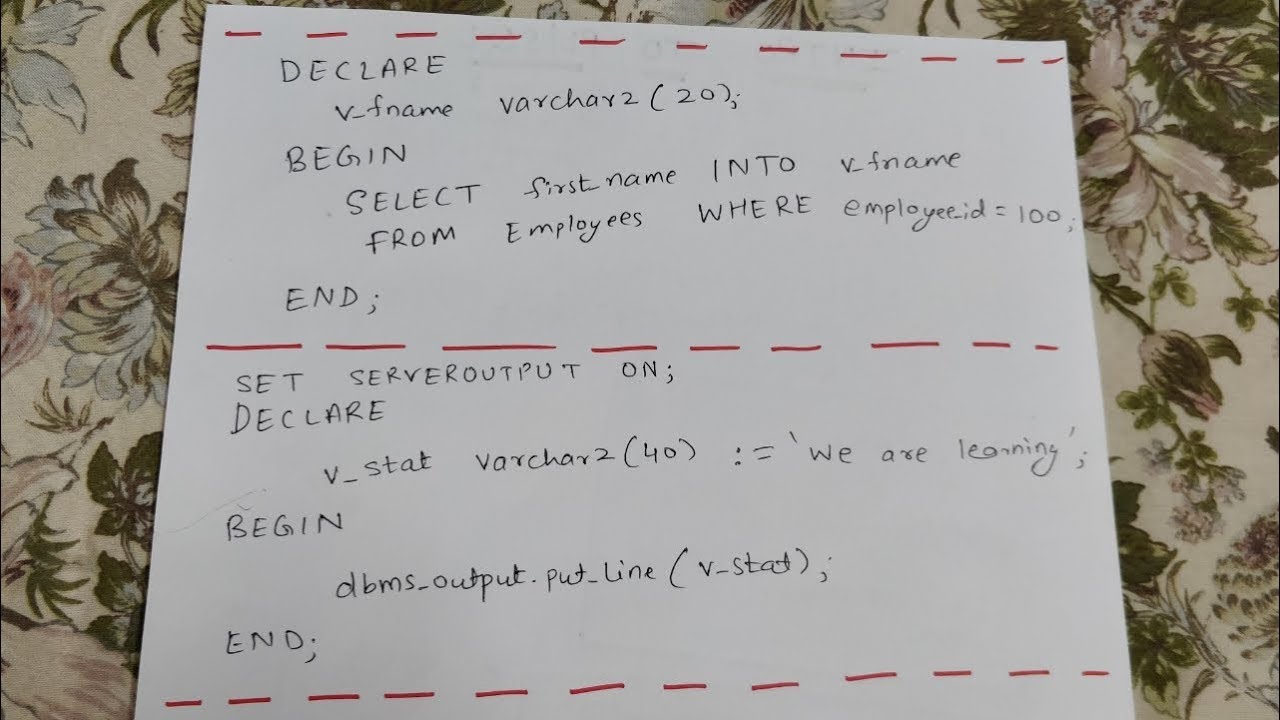 DECLARE
v_fname varchar2(20);
BEGIN
SELECT first_name INTO v_fname
FROM Employees WHERE employee_id = 100;
END;
SET SERVEROUTPUT ON;
DECLARE
v_stat varchar2(40) := 'We are learning';
BEGIN
dbms_output.put_line(v_stat);
END;